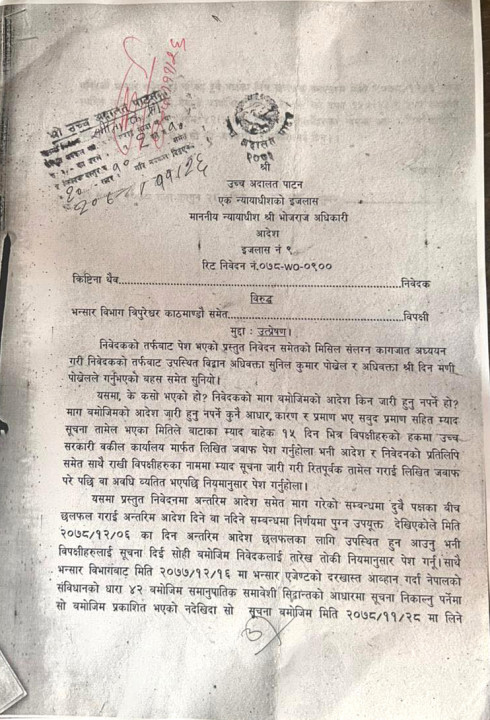 श्री उच्च अदालत पाटन
२०७८।११।२६
श्री
उच्च अदालत पाटन
एक न्यायाधीशको इजलास
माननीय न्यायाधीश श्री भोजराज अधिकारी
आदेश
इजलास नं ९
रिट निवेदन नं.०७८-WO-०९००
किष्टिना थैव......निवेदक
विरुद्ध
भन्सार विभाग त्रिपुरेश्वर काठमाण्डौ समेत......विपक्षी
मुद्दा : उत्प्रेषण।
निवेदकको तर्फबाट पेश भएको प्रस्तुत निवेदन समेतको मिसिल संलग्न कागजात अध्ययन
गरी निवेदकको तर्फबाट उपस्थित विद्वान अधिवक्ता सुनिल कुमार पोखेल र अधिवक्ता श्री दिन मणी
पोखेलले गर्नुभएको बहस समेत सुनियो।
यसमा, के कसो भएको हो? निवेदकको माग बमोजिमको आदेश किन जारी हुनु नपर्ने हो?
माग बमोजिमको आदेश जारी हुनु नपर्ने कुनै आधार, कारण र प्रमाण भए सबुद प्रमाण सहित म्याद
सूचना तामेल भएका मितिले बाटाका म्याद बाहेक १५ दिन भित्र विपक्षीहरुको हकमा उच्च
सरकारी वकील कार्यालय मार्फत लिखित जवाफ पेश गर्नुहोला भनी आदेश र निवेदनको प्रतिलिपि
समेत साथै राखी विपक्षीहरुका नाममा म्याद सूचना जारी गरी रितपूर्वक तामेल गराई लिखित जवाफ
परे पछि बा अवधि व्यतित भएपछि नियमानुसार पेश गर्नुहोला।
यसमा प्रस्तुत निवेदनमा अन्तरिम आदेश समेत माग गरेको सम्बन्धमा दुवै पक्षका बीच
छलफल गराई अन्तरिम आदेश दिने वा नदिने सम्बन्धमा निर्णयमा पुग्न उपयुक्त देखिएकोले मिति
२०७८/१२/०६ का दिन अन्तरिम आदेश छलफलका लागि उपस्थित हुन आउनु भनी
विपक्षीहरुलाई सूचना दिई सोही बमोजिम निवेदकलाई तारेख तोकी नियमानुसार पेश गर्नू।साथै
भन्सार विभागबाट मिति २०७७/१२/१६ मा भन्सार एजेण्टको दरखास्त आव्हान गर्दा नेपालको
संविधानको धारा ४२ बमोजिम समानुपातिक समावेशी सिद्धान्तको आधारमा सूचना निकाल्नु पर्नेमा
सो बमोजिम प्रकाशित भएको नदेखिदा सो सूचना बमोजिम मिति २०७८/११/२८ मा लिने